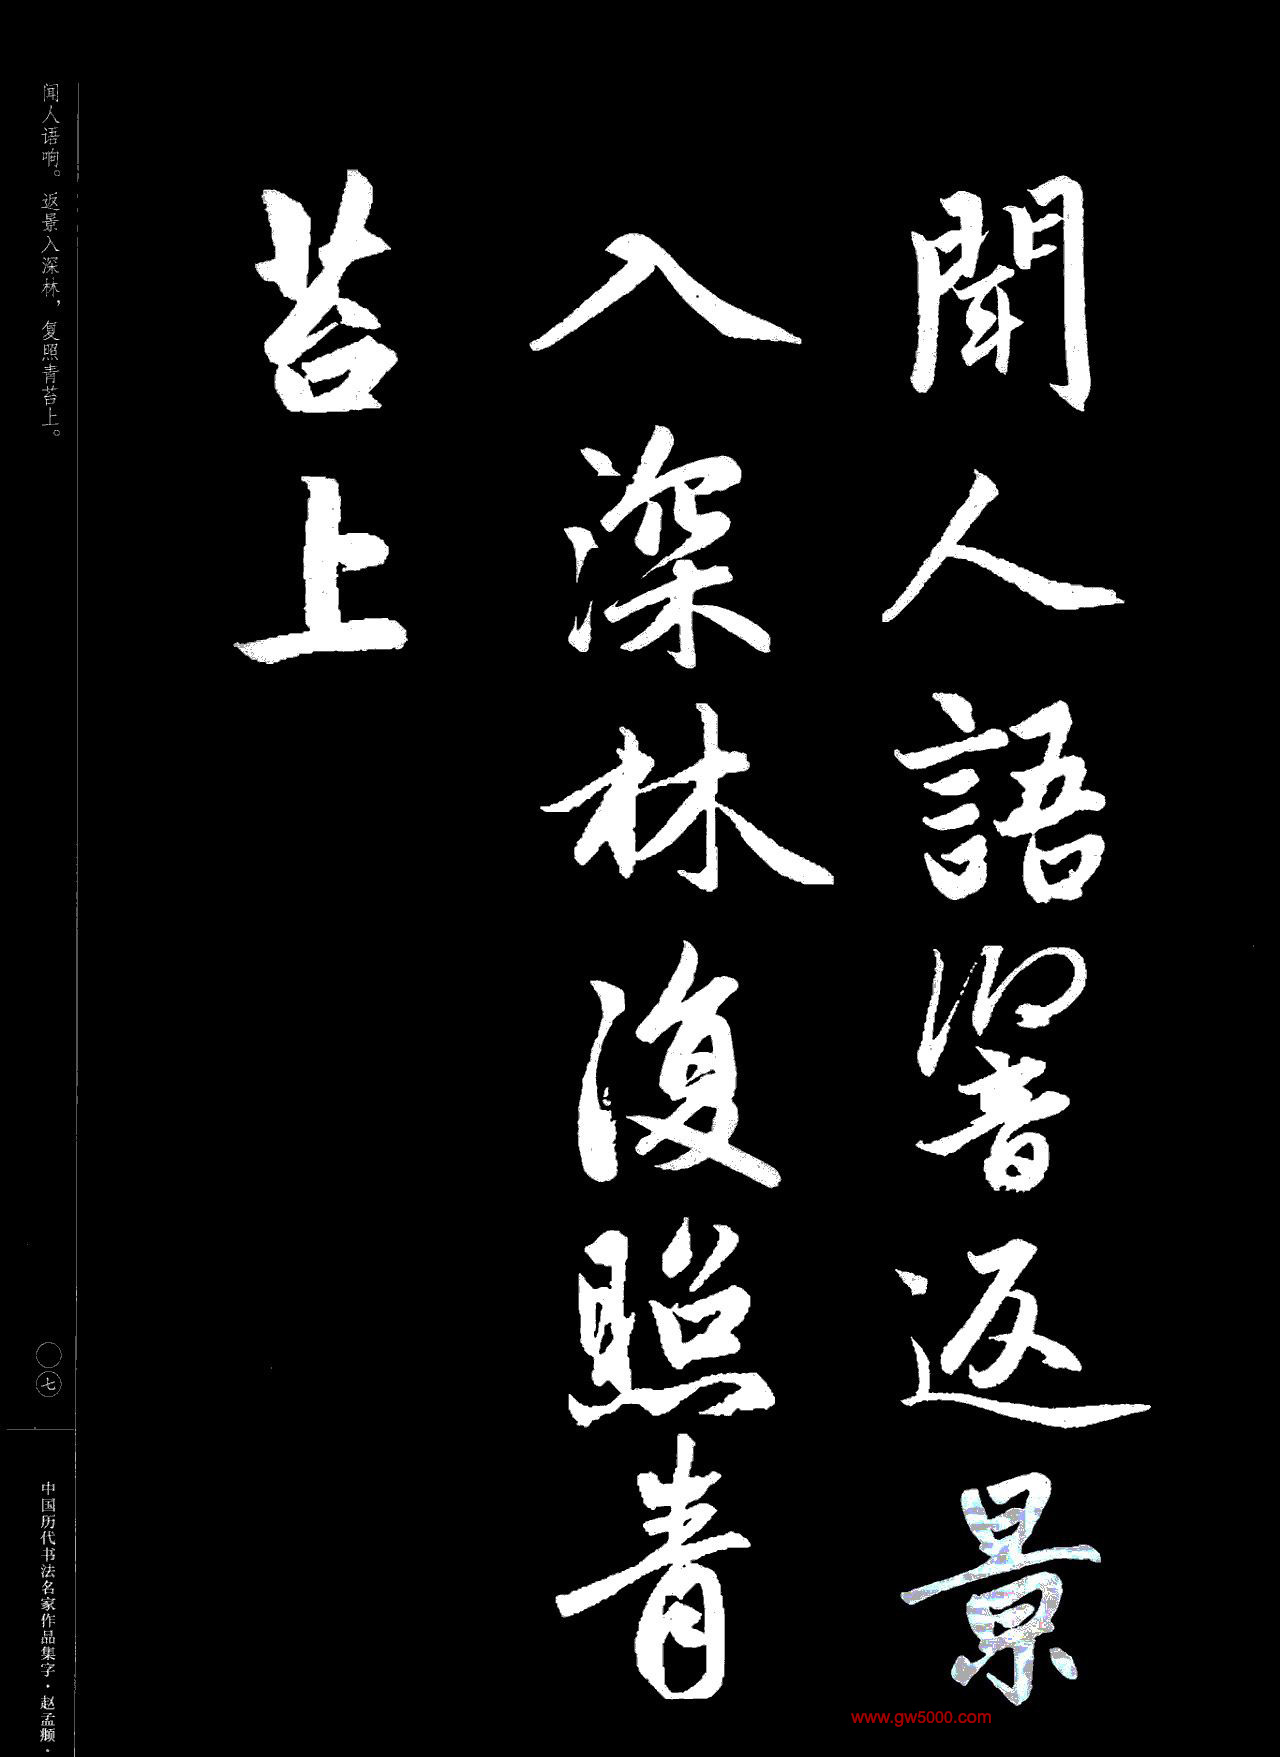 聞人語響返景
入深林復照青
苔上
闻人语响。返景入深林，复照青苔上。
〇七
中国历代书法名家作品集字·赵孟頫·
www.gw5000.com